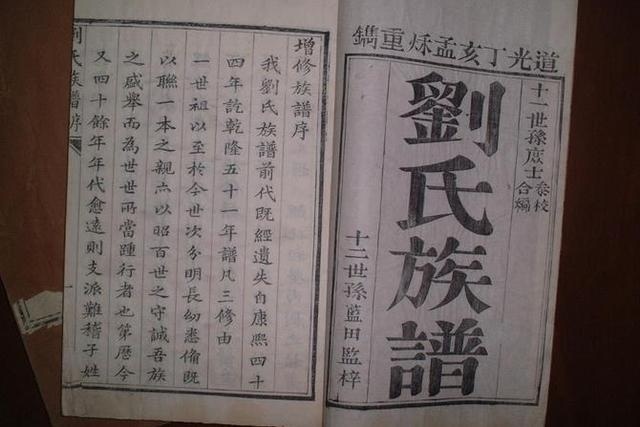 道光丁亥孟秌重鐫
十一世孫庻士叅校合編
劉氏族譜
十二世孫藍田監梓
增修族譜序
我劉氏族譜前代既經遺失自康熙四十
四年訖乾隆五十一年譜凡三修由
一世祖以至於今世次分明長幼悉俻既
以聯一本之親亦以昭百世之守誠吾族
之盛舉而為世世所當踵行者也第歷今
又四十餘年年代愈遠則支派難稽子姓
劉氏族譜序
一